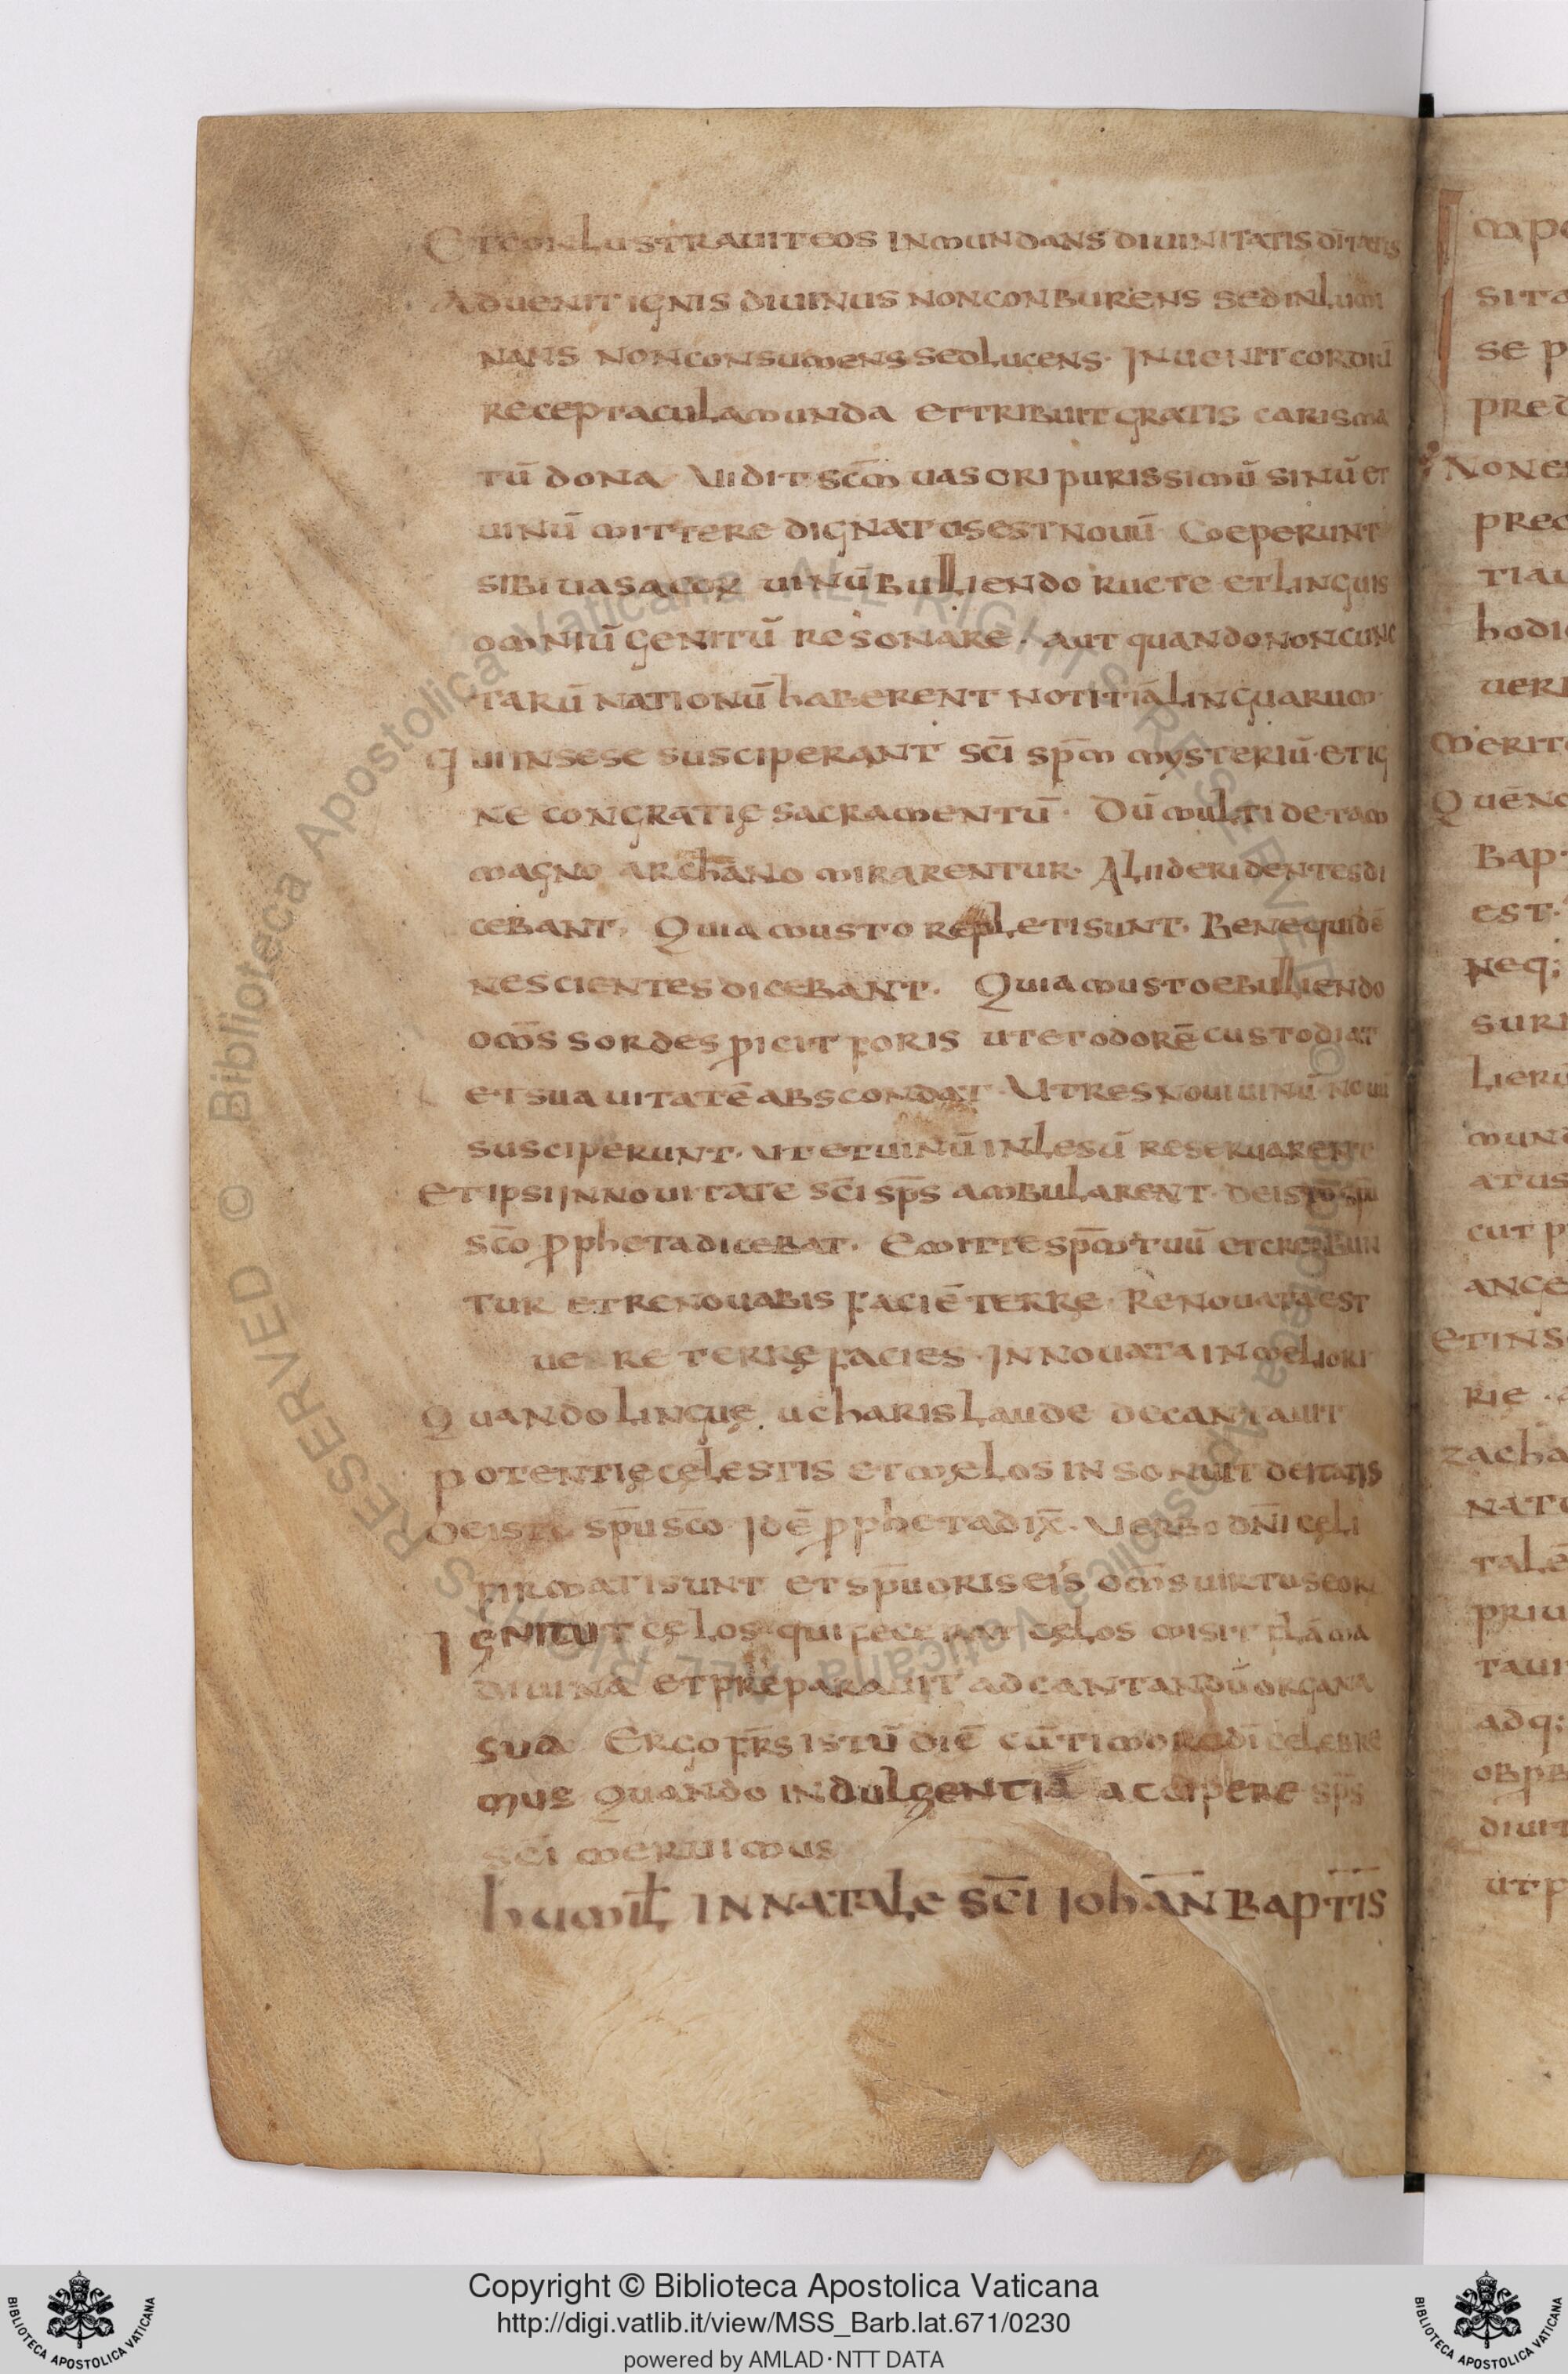 Et conlustrauit eos inmundans diuinitatis ditatis
Aduenit ignis diuinus non conburens sed inlumi
nans non consumens sed lucens· Inuenit cordiū
receptacula munda et tribuit gratis carisma
tū dona Vidit scm̄ uas ori purissimū sinū et
uinū mittere dignatus est nouū Coeperunt
sibi uasa cor uinū bulliendo ructe et linguis
omniū genitū resonare· aut quando non cunc
tarū nationū haberent notitiā linguarum·
qui in sese susciperant sc̄i sp̄m mysteriū· et ig
ne congratię sacramentū· Dū multi de tam
magno archano mirarentur· Alii deridentes di
cebant· Quia musto repleti sunt· Bene quidē
nescientes dicebant· Quia musto ebulliendo
om̄s sordes ꝓicit foris ut et odorē custodiat
et suauitatē abscondat· Vtres noui uinū nouū
susciperunt· ut et uinū inlesū reseruarent
et ipsi in nouitate sc̄i sp̄s ambularent· de isto sp̄u
sc̄o ꝓpheta dicebat· Emitte sp̄m tuū et crebun
tur et renouabis faciē terrę· Renouata est
uere terrę facies· Innouata in meliori
Quando linguę ucharis laude decantauit
potentię cęlestis et męlos insonuit deitatis
De isto sp̄u sc̄o· Idē ꝓpheta dix̄· Verbo dn̄i cęli
firmati sunt et sp̄u oris eīs om̄s uirtus eorū
Ignitu cęlos qui fecerat cęlos misit flāma
diuinā et pręparauit ad cantandū organa
sua Ergo fr̄s istū diē cū timore dī celebre
mus Quando indulgentiā accipere sp̄s
sc̄i meruimus
humiƚ in natale sc̄i iohān bapt̄is
Copyright © Biblioteca Apostolica Vaticana
http://digi.vatlib.it/view/MSS_Barb.lat.671/0230
powered by AMLAD·NTT DATA